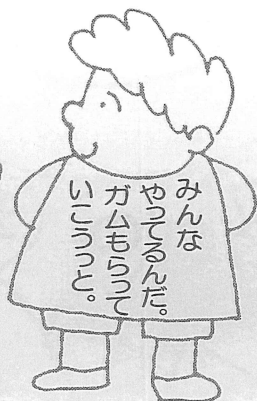 みんな
やってるんだ。
ガムもらって
いこうっと。